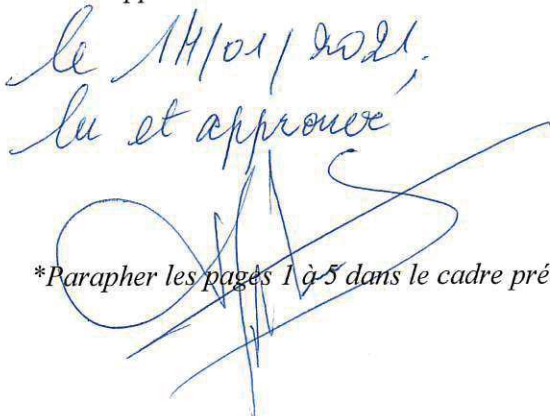 le 14/01/2021,
lu et approuvé
*Parapher les pages 1 à 5 dans le cadre pré